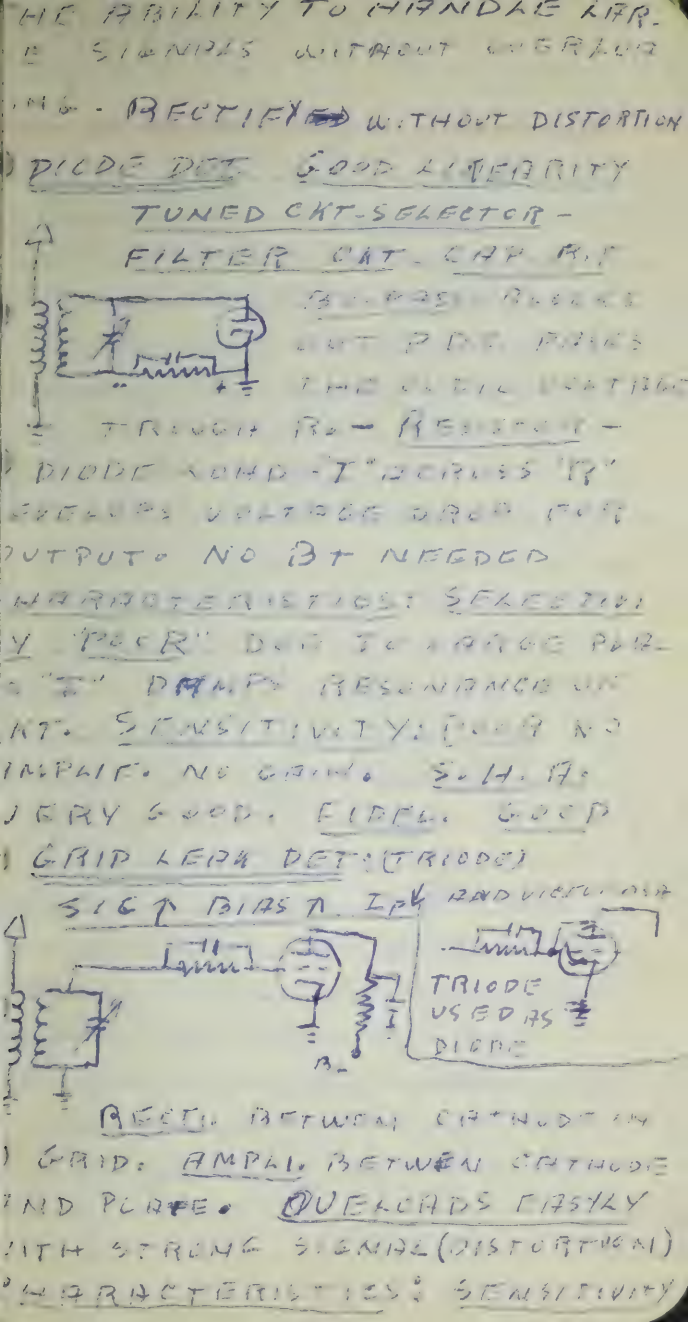 HE ABILITY TO HANDLE LAR-
E SIGNALS WITHOUT OVERLOA
ING. RECTIFY WITHOUT DISTORTION
) DIODE DET. GOOD LINEARITY
TUNED CKT-SELECTOR-
FILTER CKT. CAP. R.F
BY-PASS BLOCKS
OUT PASSES
THE AUDIO VOLTAGE
TROUGH RL - RESISTOR -
) DIODE LOAD "I" ACROSS "R"
EVELOPS VOLTAGE DROP FOR
OUTPUT. NO B+ NEEDED
HARACTERISTICS: SELECTIVI
Y "POOR" DUE TO LARGE PLA-
"I" DAMPS RESONANCE
KT. SENSITIVITY: POOR NO
AMPLIF. NO GAIN. S.H.A.
VERY GOOD. FIDEL. GOOD
) GRID LEAK DET: (TRIODE)
SIG ↑ BIAS ↑ IP↓ AND VICEVERSA
TRIODE
USED AS
DIODE
B-
RECTI. BETWEN CATHODE IN
) GRID. AMPLI. BETWEN CATHODE
AND PLATE. OVELOADS EASYLY
WITH STRONG SIGNAL (DISTORTION)
CHARACTERISTICS: SENSITIVITY